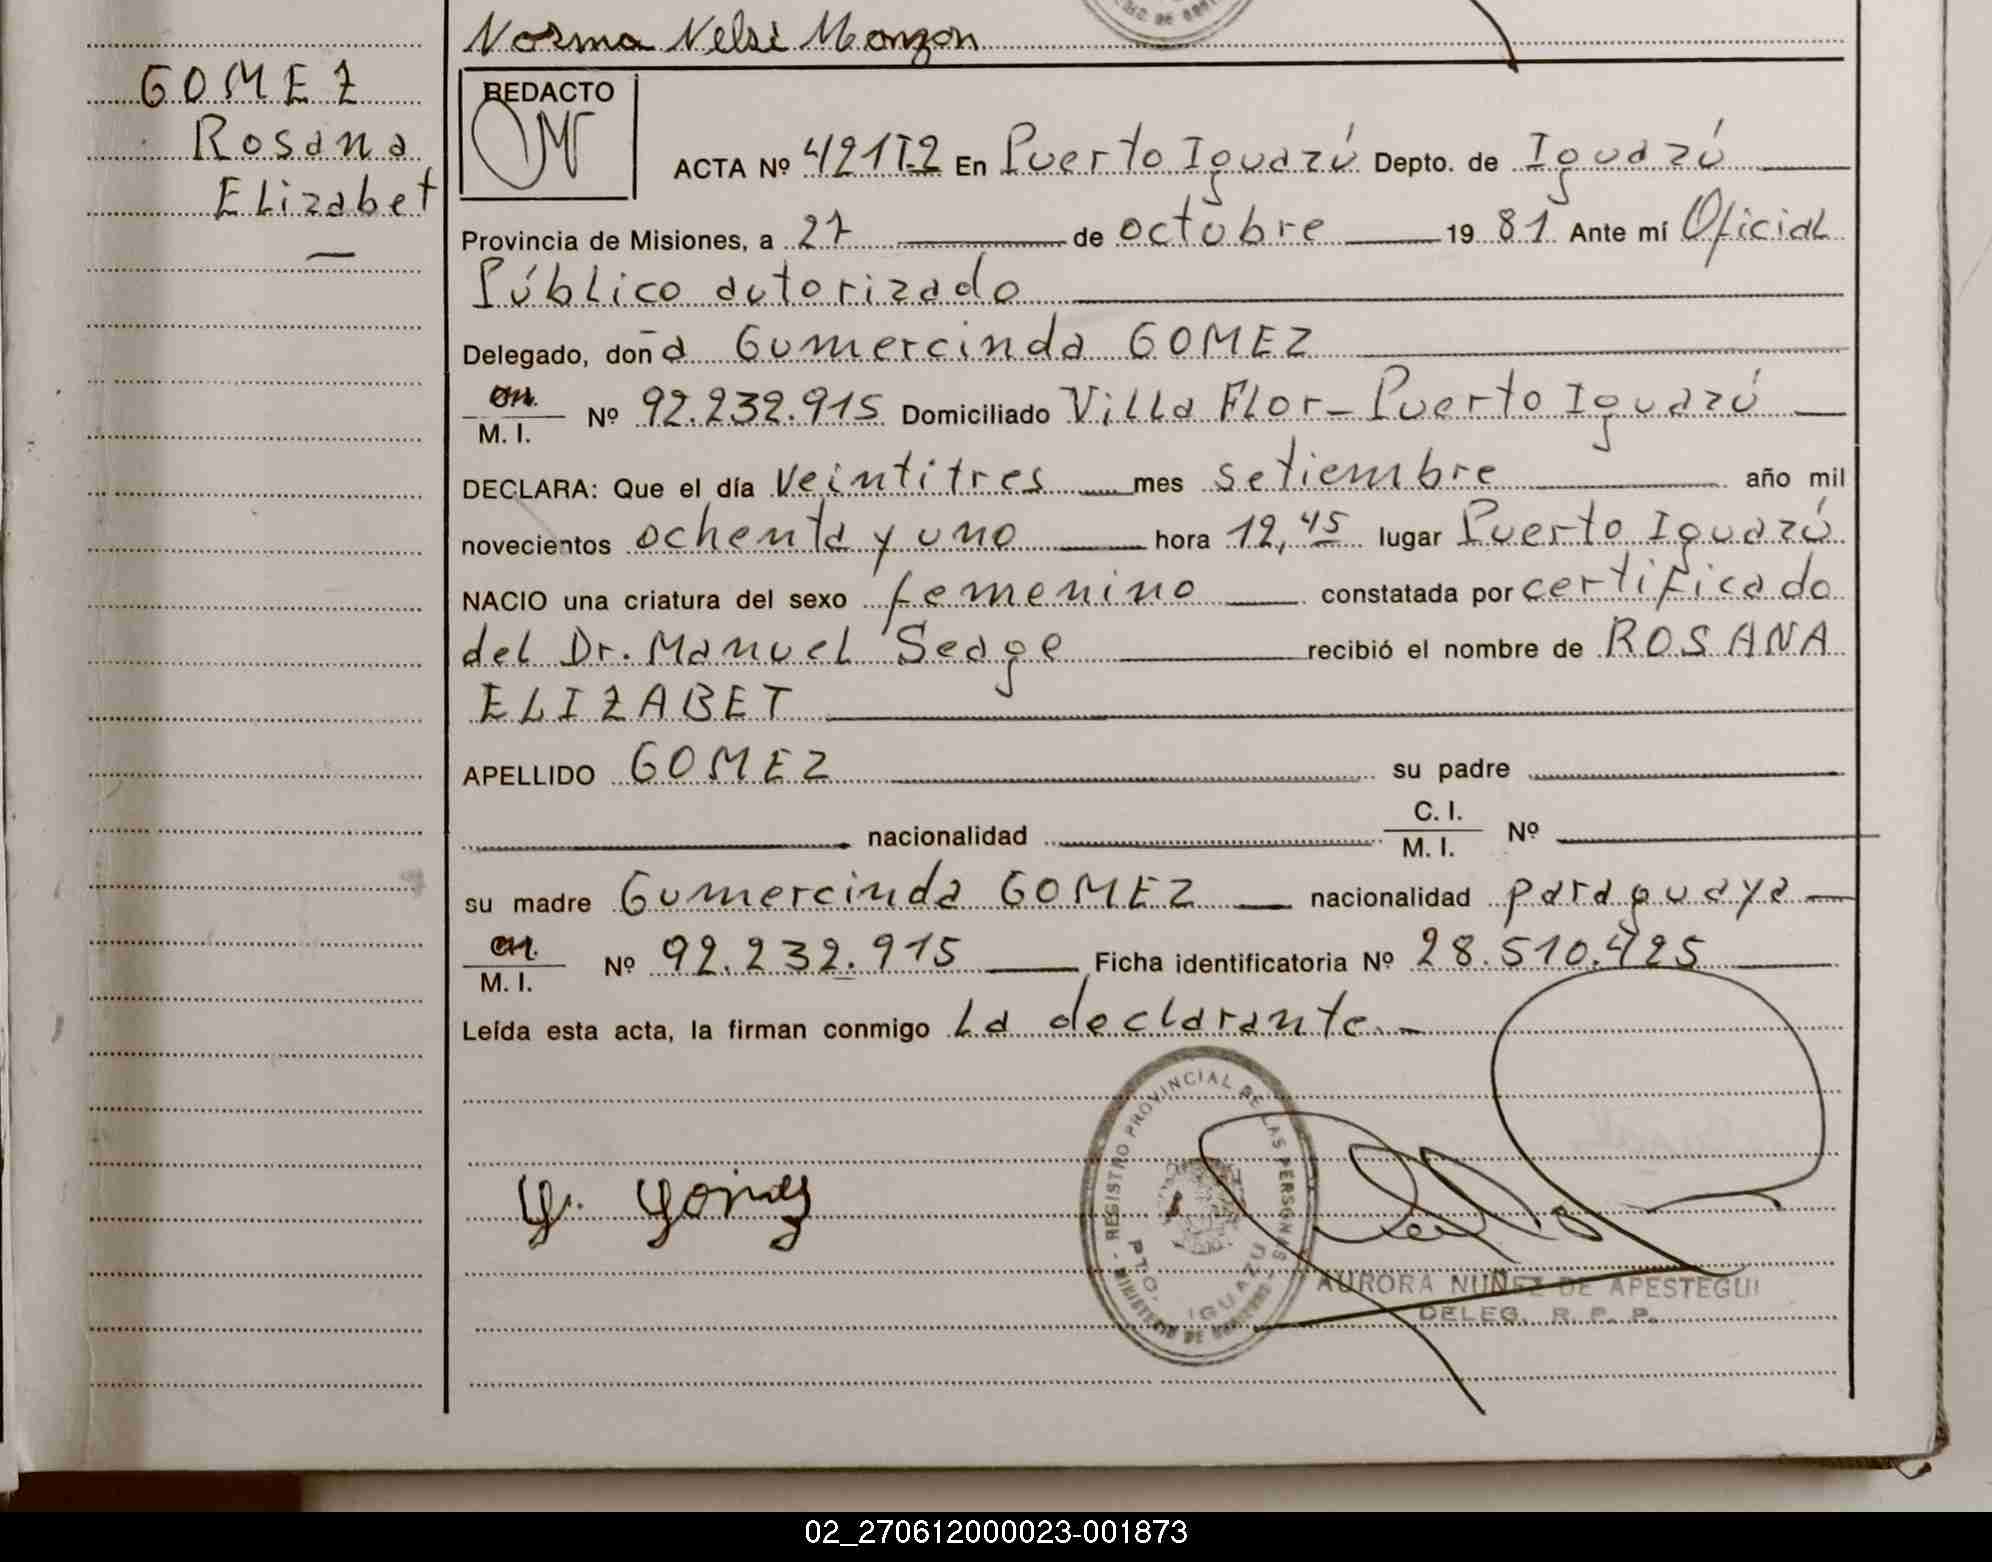 Norma Nelsi Monzon
GOMEZ
Rosana
Elizabet
REDACTO
ACTA Nº 421T2 En Puerto Iguazú Depto. de Iguazú
Provincia de Misiones, a 27 de octubre 1981 Ante mí Oficial
Público autorizado
Delegado, doña Gumercinda GOMEZ
M. I. Nº 92.232.915 Domiciliado Villa Flor - Puerto Iguazú
DECLARA: Que el día veintitres mes setiembre año mil
novecientos ochenta y uno hora 12,45 lugar Puerto Iguazú
NACIO una criatura del sexo femenino constatada por certificado
del Dr. Manuel Seage recibió el nombre de ROSANA
ELIZABET
APELLIDO GOMEZ su padre
nacionalidad C. I. M. I. Nº
su madre Gumercinda GOMEZ nacionalidad paraguaya
M. I. Nº 92.232.915 Ficha identificatoria Nº 28.510.425
Leída esta acta, la firman conmigo La declarante.
REGISTRO PROVINCIAL DE LAS PERSONAS
PTO. IGUAZU
MINISTERIO DE GOBIERNO
G. Gomez
AURORA NUÑEZ DE APESTEGUI
DELEG. R. P. P.
02_270612000023-001873